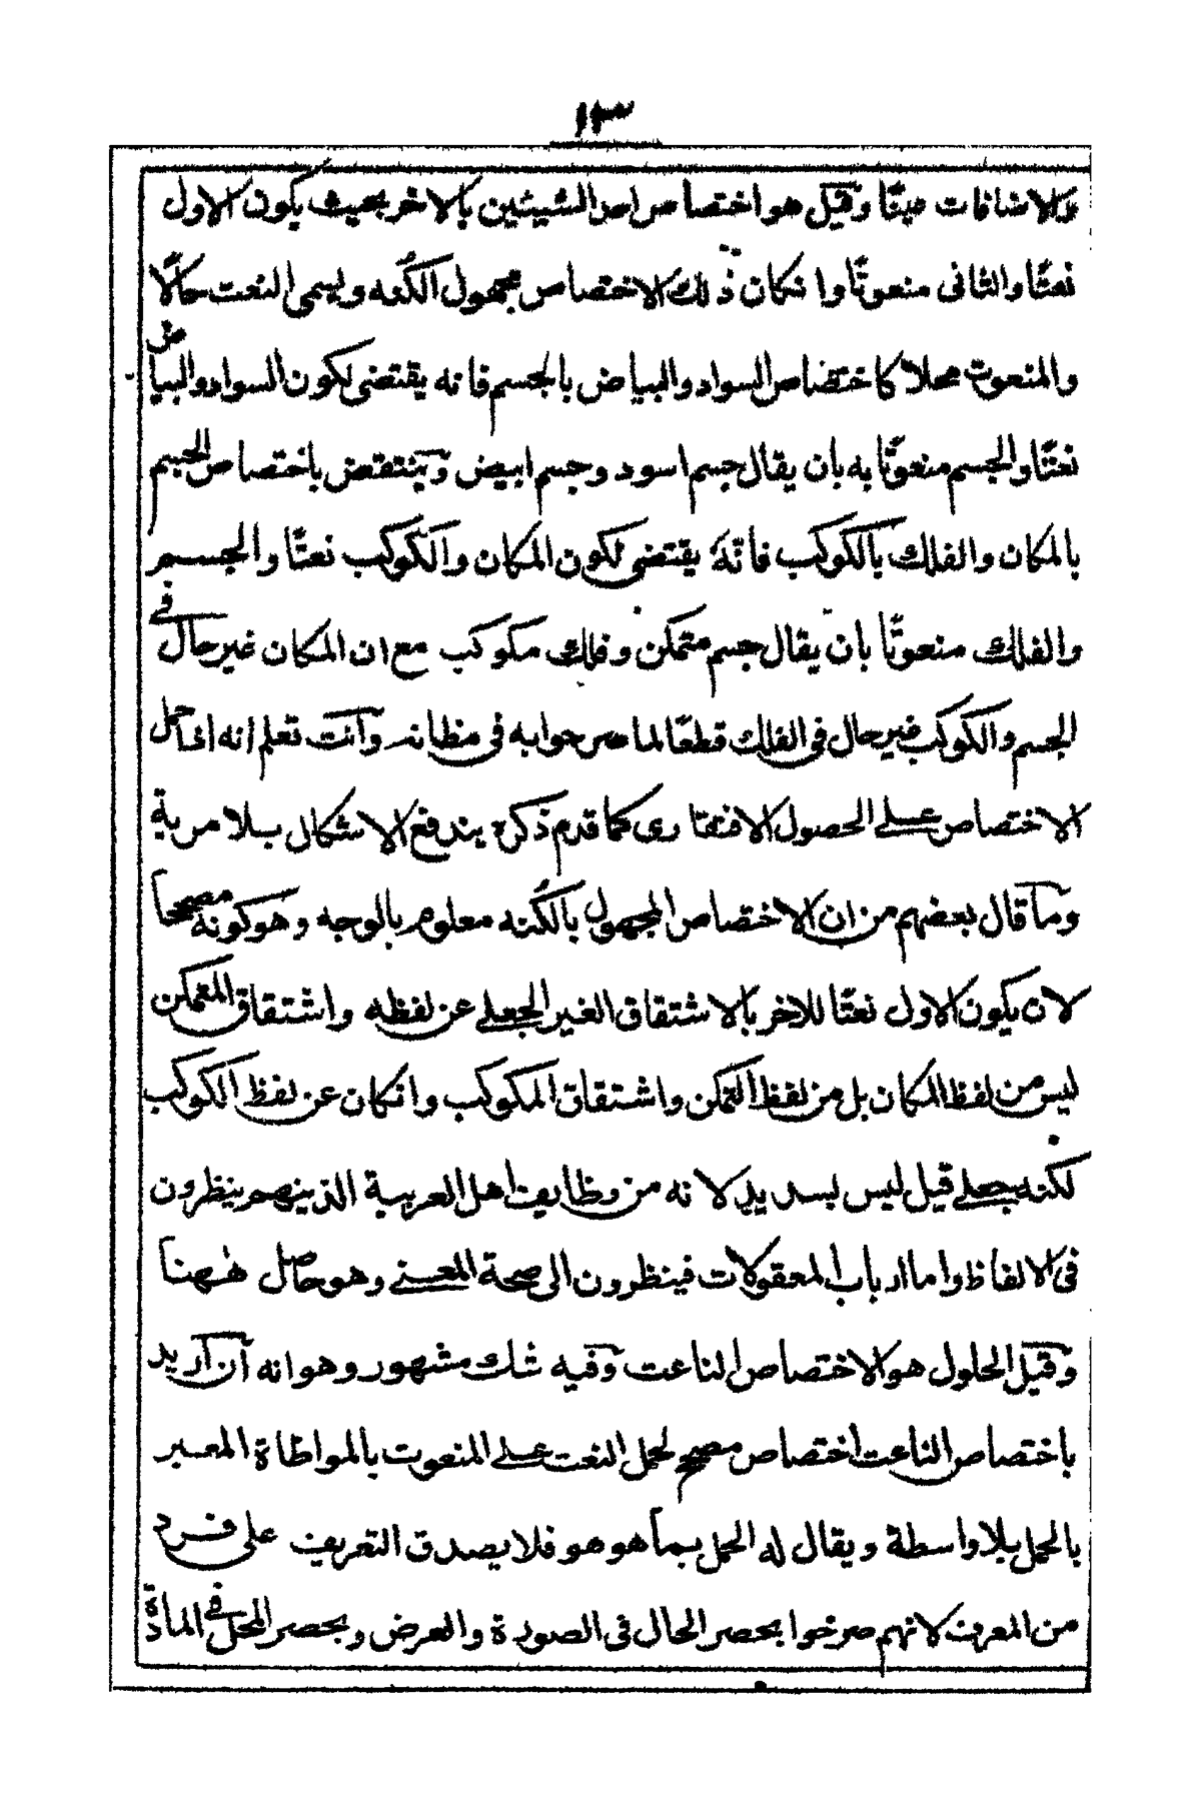 ١٣
والاضافات عينًا وقيل هو اختصاص احد الشيئين بالاخر بحيث يكون الاول
نعتًا والثانى منعوتًا وانكان ذلك الاختصاص مجهول الكنه ويسمى النعت حالًا
والمنعوت محلا كاختصاص السواد والبياض بالجسم فانه يقتضى لكون السواد والبياض
نعتًا والجسم منعوتًا به بان يقال جسم اسود وجسم ابيض وينتقض باختصاص الجسم
بالمكان والفلك بالكوكب فانه يقتضى لكون المكان والكوكب نعتًا والجسم
والفلك منعوتًا بان يقال جسم متمكن وفلك مكوكب مع ان المكان غير حال فى
الجسم والكوكب غير حال فى الفلك قطعًا لما صرحوا به فى مظانه وانت تعلم انه اذا حمل
الاختصاص على الحصول الافتقارى كما قدم ذكره يندفع الاشكال بلا مرية
وما قال بعضهم من ان الاختصاص المجهول بالكنه معلوم بالوجه وهو كونه مصححا
لان يكون الاول نعتًا للاخر بالاشتقاق الغير الجعلى عن لفظه واشتقاق المتمكن
ليس من لفظ المكان بل من لفظ التمكن واشتقاق المكوكب وانكان عن لفظ الكوكب
لكنه بجعلى قيل ليس بسديد لانه من وظايف اهل العربية الذينهم ينظرون
فى الالفاظ واما ارباب المعقولات فينظرون الى صحة المعنى وهو حاصل ههنا
وقيل الحلول هو الاختصاص الناعت وفيه شك مشهور وهو انه ان اريد
باختصاص الناعت اختصاص مصحح لحمل النعت على المنعوت بالمواطاة المعبر
بالحمل بلا واسطة ويقال له الحمل بما هو هو فلا يصدق التعريف على فرد
من المعرف لانهم صرحوا بحصر الحال فى الصورة والعرض وبحصر المحل فى المادة